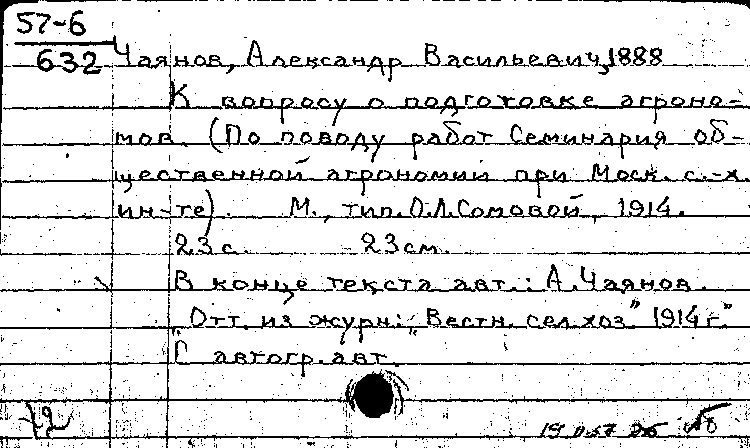 57-6
632
Чаянов, Александр Васильевич, 1888
К вопросу о подготовке агроно-
мов. (По поводу работ Семинария об-
щественной агрономии при Моск. с.-х.
ин-те). М., тип. О.Л. Сомовой, 1914.
23 с. 23 см.
В конце текста авт.: А. Чаянов.
"Отт. из журн.: "Вестн. сел. хоз" 1914 г."
С автогр. авт.